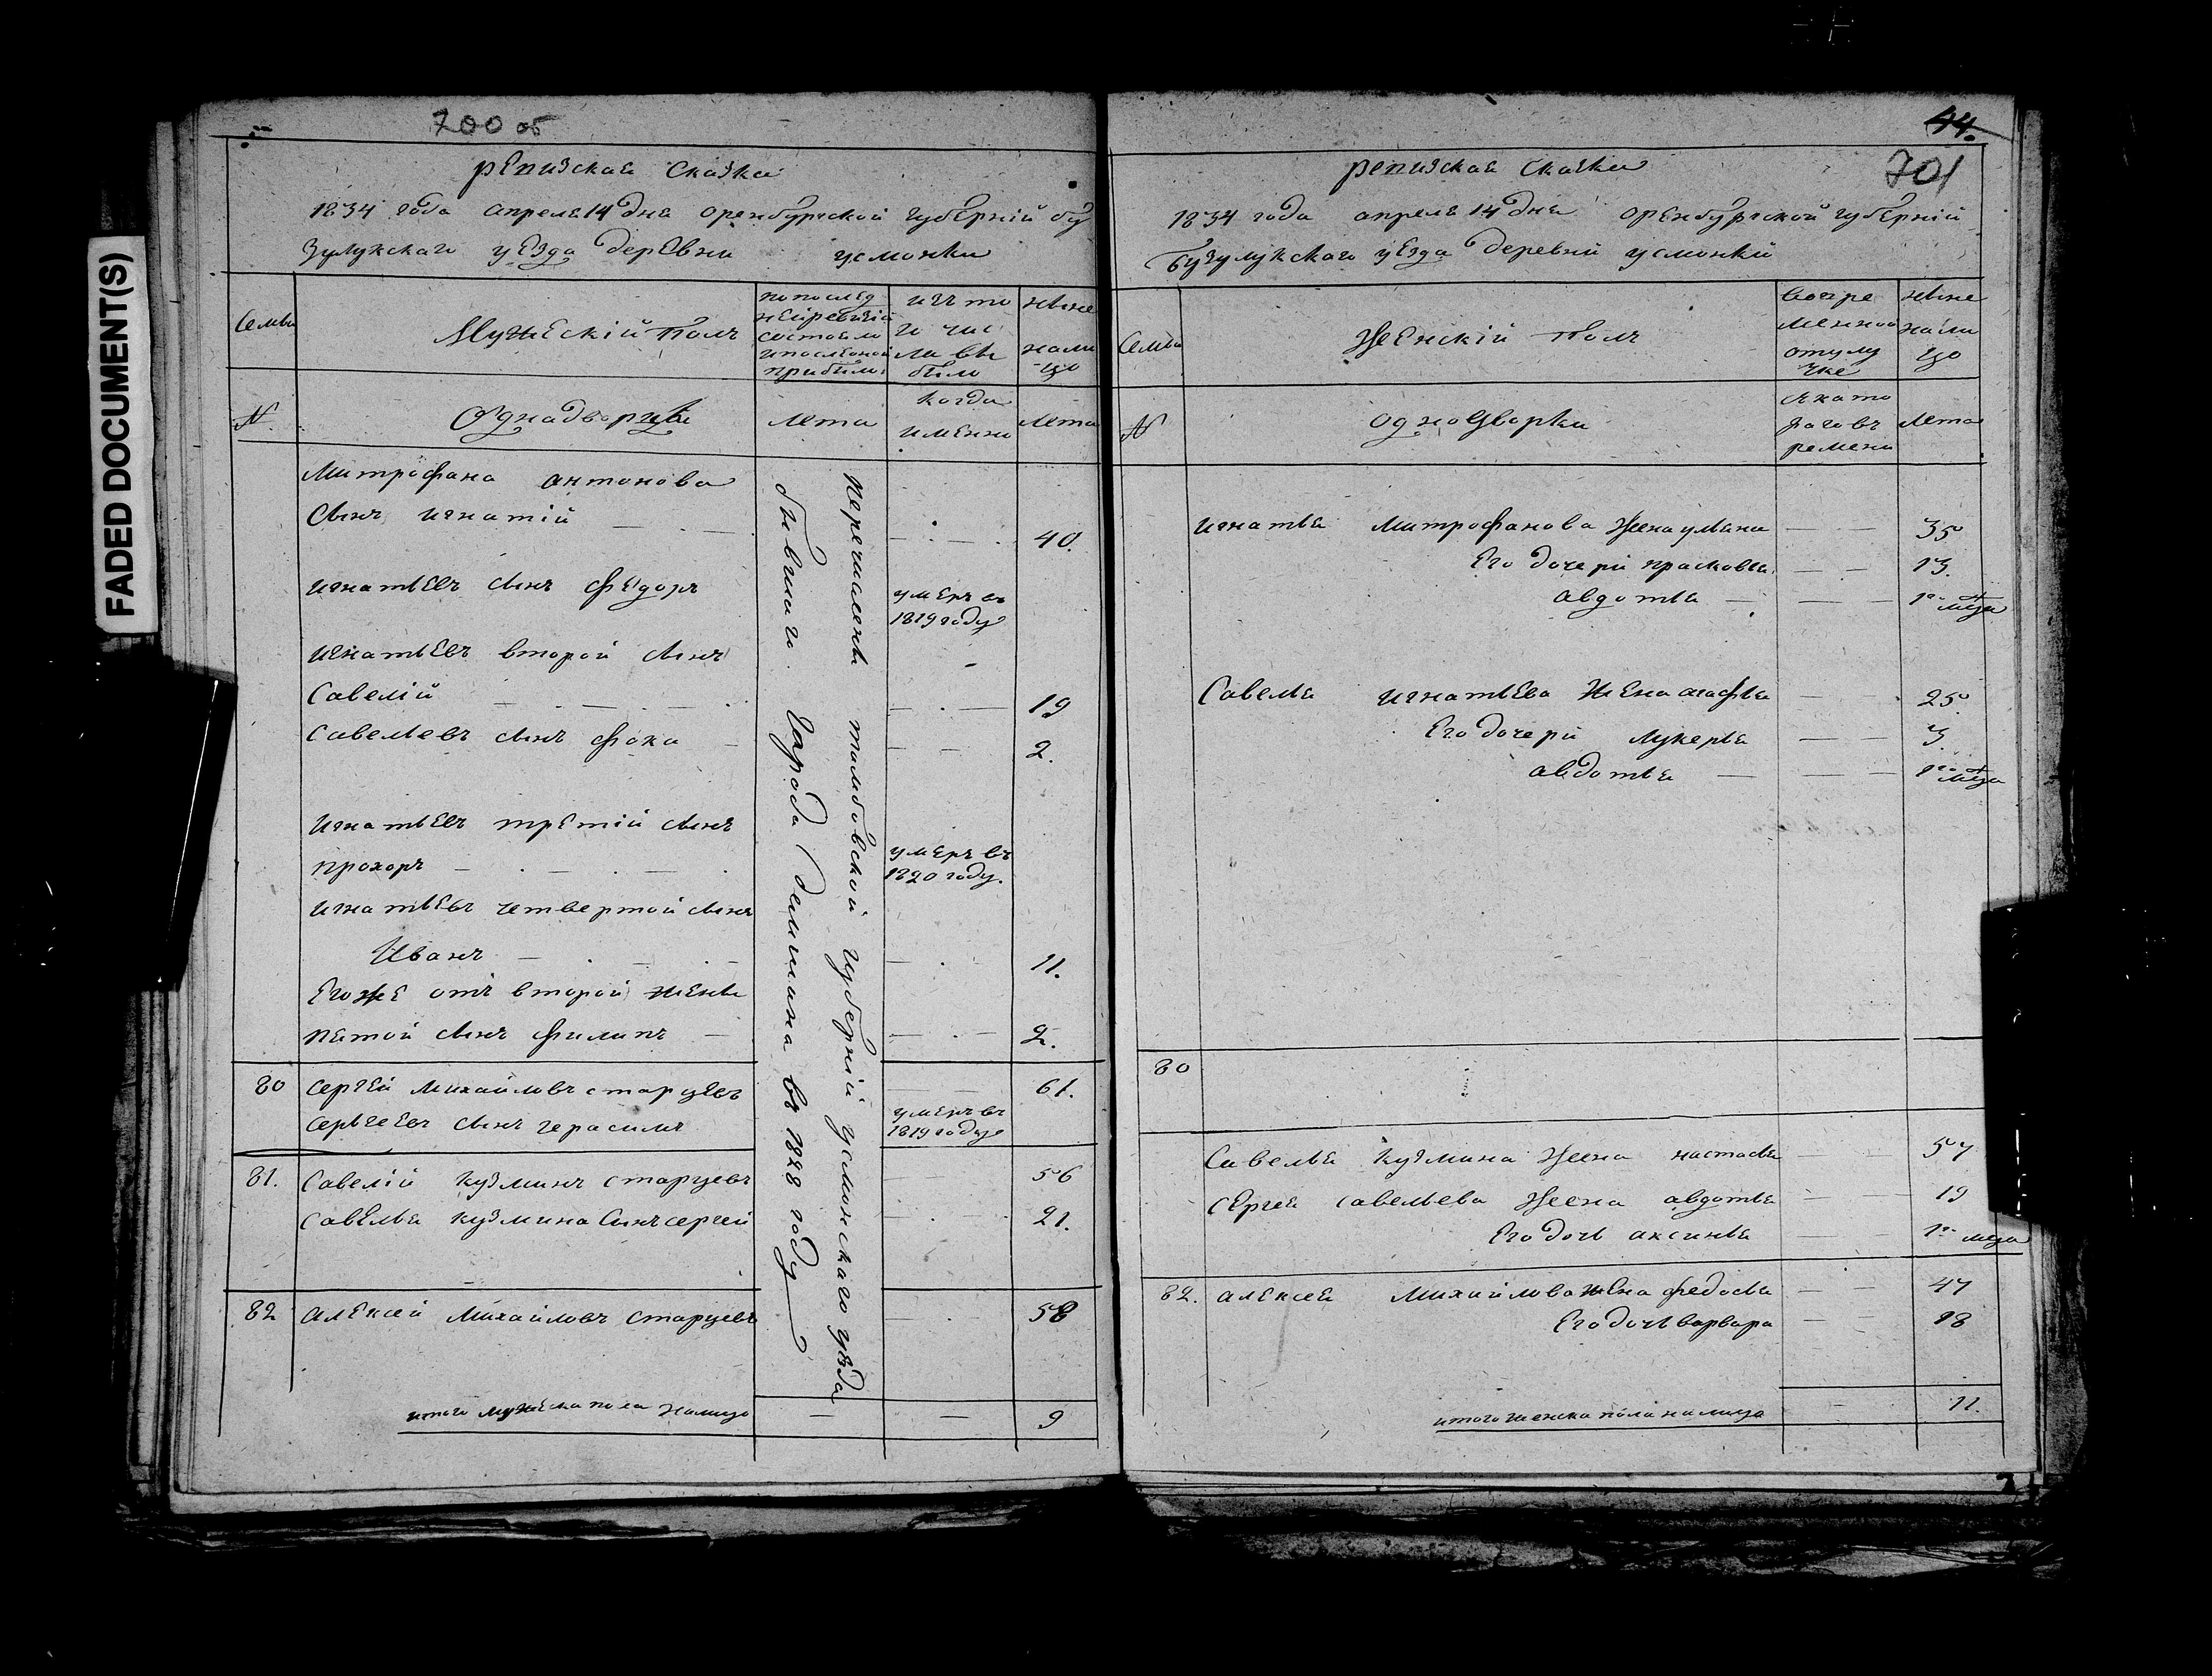 FADED DOCUMENT(S)
700 об
ревизская Сказка
1834 года апреля 14 дня оренбургской губерній бу
зулукскаго уезда деревни усмонки
Семьи
Мужескій полъ
по послед
ней ревизіи
состояло
и после оной
прибыло
изъ то
го чис
ла вы
было
ныне
нали
цо
№
Однадворцы
лета
когда
именно
лета
Митрофана антонова
сынъ игнатій
40.
игнатьевъ сынъ федоръ
умеръ въ
1819 году
игнатьевъ второй сынъ
Савелій
19
Савельевъ сынъ фока
2.
игнатьевъ третій сынъ
прохоръ
умеръ въ
1820 году.
игнатьевъ четвертой сынъ
Иванъ
11.
Егоже отъ второй жены
пятой сынъ филипъ
2.
80 сергей михайловъ старцевъ
61.
сергеевъ сынъ герасимъ
умеръ въ
1819 году
81. Савелій кузминъ старцевъ
56
Савелья кузмина сынъ сергей
21.
82 алексей михайловъ старцевъ
58
перечислены тамбовской губерній усмонскаго уезда
бывшаго города демшина въ 1828 году
итого мужеска пола налицо
9
44.
701
ревизская сказка
1834 года апреля 14 дня оренбургской губерній
бузулукскаго уезда деревни усмонкй
Семьи
Женскій полъ
во вре
менной
отлу
чке
ныне
нали
цо
№
однодворки
с кото
раго въ
ремени
лета
игнатья митрофанова жена ульяна
35
Его дочери прасковья
13.
авдотья
1го меца
Савелья игнатьева жена агафья
25.
Его дочери лукерья
3.
авдотья
1го меца
80
Савелья кузмина жена настасья
57
сергея савельева жена авдотья
19
Его дочь аксинья
1го меца
82. алексея михайлова жена федосья
47
Его дочь варвара
18
итого женска пола налицо
11.